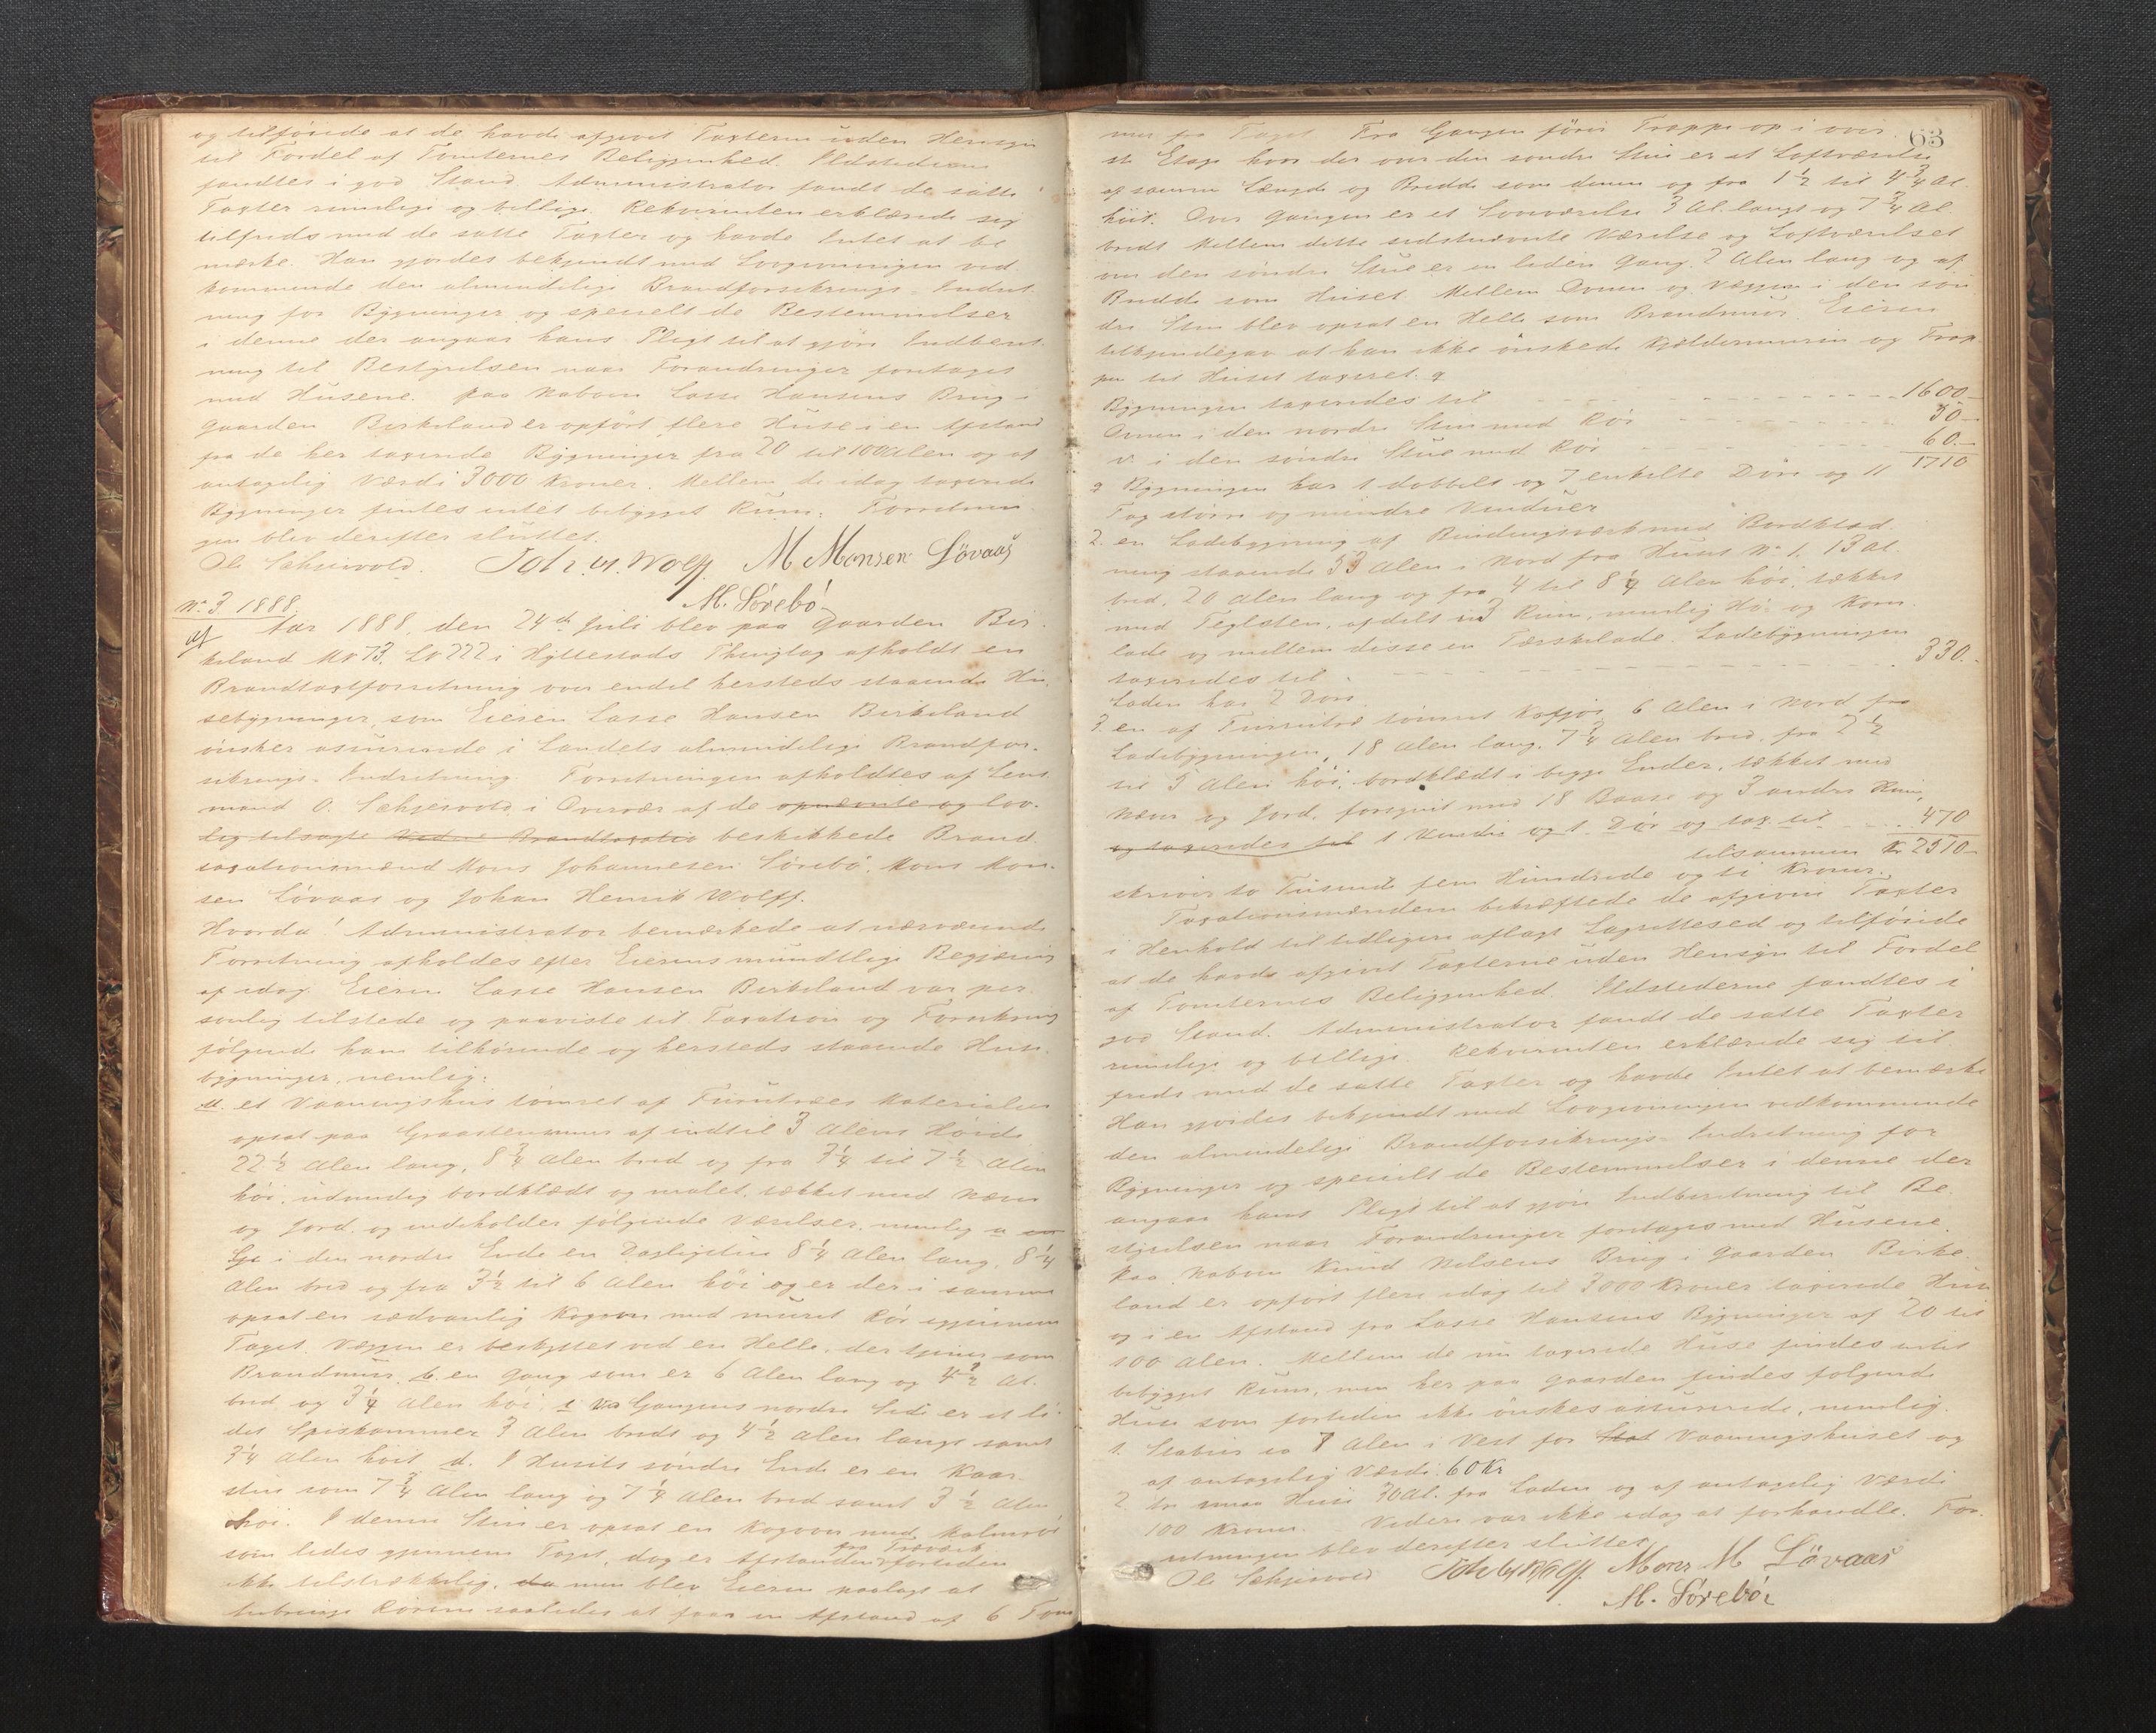 og tilførede at de havde afgivet Taxterne uden Hensyn
til Fordel af Tomternes Beliggenhed. Ildstederne
fandtes i god Stand. Administrator fandt de satte
Taxter rimelige og billige. Rekvirenten erklærede sig
tilfreds med de satte Taxter og havde Intet at be
mærke. Han gjordes bekjendt med Lovgivningen ved
kommende den almindelige Brandforsikrings-Indret
ning for Bygninger og specielt de Bestemmelser
i denne der angaar hans Pligt til at gjøre Indberet
ning til Bestyrelsen naar Forandringer foretages
med Husene. Paa Naboen Lasse Hansens Brug i
Gaarden Birkeland er opført flere Huse i en Afstand
fra de her taxerede Bygninger fra 20 til 100 Alen og af
antagelig Værdi 3000 Kroner. Mellem de idag taxerede
Bygninger findes intet bebygget Rum. Forretnin
gen blev derefter sluttet.
Ole Sæhjesvold. Joh. H. Wolff. M Monsen Lövaas
M. Sörebö
No 3. 1888.
Aar 1888, den 24de Juli blev paa Gaarden Bir
keland Mo 73, Lo 222 i Hyllestads Thinglag afholdt en
Brandtaxtforretning over endel hersteds staaende Hu
sebygninger, som Eieren Lasse Hansen Birkeland
ønsker assurerede i Landets almindelige Brandfor-
sikrings-Indretning. Forretningen afholdtes af Lens
mand O. Sæhjesvold i Overvær af de opnævnte og lov-
lig tilsagte beskikkede Brand
taxationsmænd Mons Johannesen Sörebö, Mons Mon-
sen Lövaas og Johan Henrik Wolff.
Hvorda! Administrator bemærkede at nærværende
Forretning afholdes efter Eierens mundtlige Begjæring
af idag. Eieren Lasse Hansen Birkeland var per
sonlig tilstede og paaviste til Taxation og Forsikring
følgende ham tilhørende og hersteds staaende Huse
bygninger, nemlig:
et Vaaningshus tømret af Furutræes Materialier
opsat paa Graastensmur af indtil 3 Alens Høide
22 1/2 Alen lang, 8 1/4 Alen bred og fra 3 1/4 til 7 1/2 Alen
høi, udvendig bordklædt og malet, tækket med Næver
og Jord, og indeholder følgende Værelser, nemlig
i den nordre Ende en Dagligstue 8 1/4 Alen lang, 8 1/4
Alen bred og fra 3 1/2 til 6 Alen høi og er der i samme
opsat en sædvanlig Kogovn med muret Rör igjennem
Taget. Væggen er beskyttet ved en Helle, der tjener som
Brandmur. b. en Gang som er 6 Alen lang og 4 1/2 Al.
bred og 3 1/4 Alen høi. c. Ved Gangens nordre Side er et li
det Spiskammer 3 Alen bredt og 4 1/2 Alen langt samt
3 1/4 Alen høit. d. I Husets søndre Ende er en Kaar
stue som 7 3/4 Alen lang og 7 1/4 Alen bred samt 3 1/2 Alen
høi. I denne Stue er opsat en Kogovn med Malmrör
som ledes gjennem Taget, dog er Afstanden fra Træværk fortiden
ikke tilstrækkelig, men blev Eieren paalagt at
indbringe Rörene saaledes at faar en Afstand af 6 Tom
63
mer fra Taget. Fra Gangen fører Trappe op i over
ste Etage hvor der over den søndre Stue er et Loftværelse
af samme Længde og Bredde som denne og fra 1 1/2 til 4 3/4 Al.
høit. Over Gangen er et Soveværelse 3 Al. langt og 7 3/4 Al.
bredt. Mellem dette sidstnævnte Værelse og Loftværelset
over den søndre Stue er en liden Gang, 2 Alen lang og af
Bredde som Huset. Mellem Ovnen og Væggen i den søn
dre Stue blev opsat en Helle som Brandmur. Eieren
tilkjendegav at han ikke ønskede Kjeldermuren og Trap
per til Huset taxeret.
Bygningen taxeredes til 1600.-
Ovnen i den nordre Stue med Rör 50.-
do. i den søndre Stue med Rör 60.-
1710
Bygningen har 1 dobbelt og 7 enkelte Döre og 11
Fag större og mindre Vinduer
2. en Ladebygning af Bindingsværk med Bordklæd
ning staaende 33 Alen i Nord fra Huset No 1, 13 Al.
bred, 20 Alen lang og fra 4 til 8 1/4 Alen høi, tækket
med Teglsten, afdelt i 3 Rum, nemlig Hö- og Korn
lade og mellem disse en Tærskelade. Ladebygningen
taxeredes til 330.-
Laden har 2 Döre
3. en af Furutræ tømret Kofjös 6 Alen i Nord fra
Ladebygningen, 18 Alen lang, 7 3/4 Alen bred, fra 2 1/2
til 5 Alen høi, bordklædt i begge Ender, tækket med
Næver og Jord, forsynet med 18 Baase og 3 andre Rum,
og taxeredes til 1 Vindu og 1 Dör og tax. til 470
tilsammen Kr 2510-
skriver to Tusinde fem Hundrede og ti Kroner.
Taxationsmændene bekræftede de afgivne Taxter
i Henhold til tidligere aflagt Lagrettesed og tilførede
at de havde afgivet Taxterne uden Hensyn til Fordel
af Tomternes Beliggenhed. Ildstederne fandtes i
god Stand. Administrator fandt de satte Taxter
rimelige og billige. Rekvirenten erklærede sig til
freds med de satte Taxter og havde Intet at bemærke
Han gjordes bekjendt med Lovgivningen vedkommende
den almindelige Brandforsikrings-Indretning for
Bygninger og specielt de Bestemmelser i denne der
angaar hans Pligt til at gjøre Indberetning til Be
styrelsen naar Forandringer foretages med Husene.
Paa Naboen Knud Nilsens Brug i Gaarden Birke
land er opført flere idag til 3000 Kroner taxerede Huse
og i en Afstand fra Lasse Hansens Bygninger af 20 til
100 Alen. Mellem de nu taxerede Huse findes intet
bebygget Rum, men her paa Gaarden findes følgende
Huse som fortiden ikke ønskes assurerede, nemlig.
1. Stabur ca 7 Alen i Vest for Vaaningshuset og
af antagelig Værdi 60 Kr
2. tre smaa Huse 30 Al. fra Laden og af antagelig Værdi
100 Kroner. Videre var ikke idag at forhandle. For
retningen blev derefter sluttet.
Ole Sæhjesvold Joh. H. Wolff. Mons M Lövaas
M. Sörebö